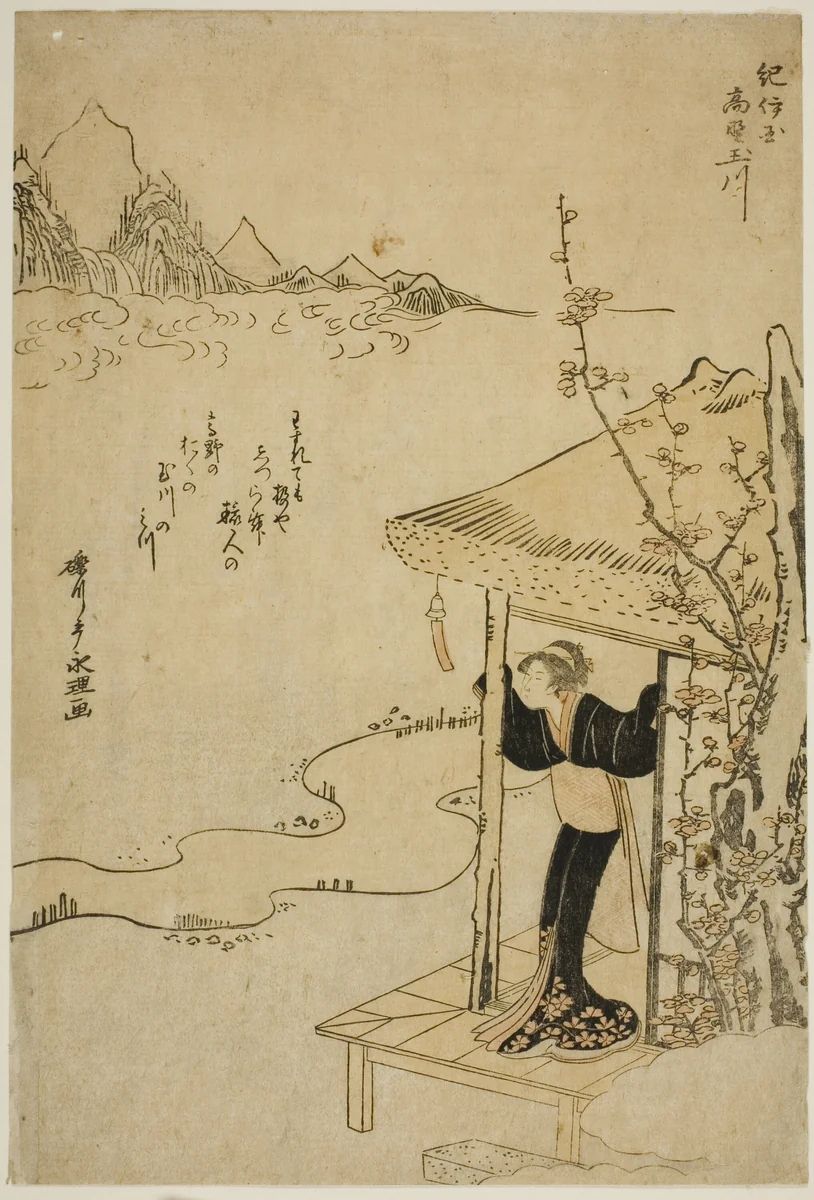 紀伊国
高野玉川
わすれても
汲やしつらん
旅人の
高野の
おくの
玉川の
水
礫川亭永理画